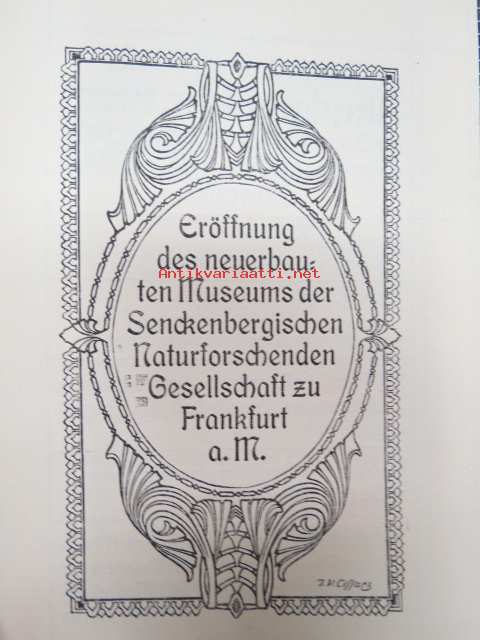 Eröffnung
des neuerbau-
Antikvariaatti.net
ten Museums der
Senckenbergischen
Naturforschenden
Gesellschaft zu
Frankfurt
a. M.